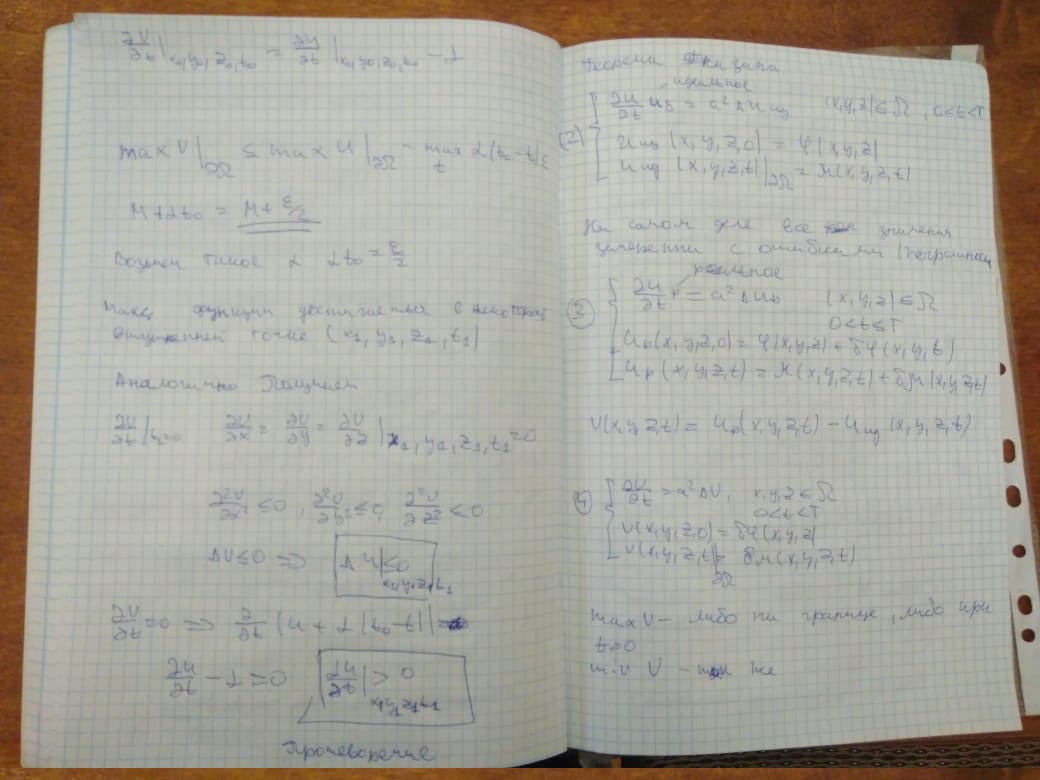 ∂V/∂t |x₀,y₀,z₀,t₀ = ∂u/∂t |x₀,y₀,z₀,t₀ − α
max V |∂Ω ≤ max u |∂Ω − max t α(t₀−t) ≤
M+αt₀ = M + ε/2
Возьмем такое α αt₀ = ε/2
Макс функции достигается в некоторой
внутренней точке (x₁, y₁, z₁, t₁)
Аналогично Получаем
∂V/∂t |t₁=0 ∂V/∂x = ∂V/∂y = ∂V/∂z |x₁, y₁, z₁, t₁ =0
∂²V/∂x² ≤0, ∂²V/∂y² ≤0, ∂²V/∂z² ≤0
ΔV≤0 => Δu|≤0 x₁,y₁,z₁,t₁
∂V/∂t =0 => ∂/∂t (u + α(t₀−t)) =
∂u/∂t − α =0 ∂u/∂t | > 0 x₁y₁z₁t₁
Прочеворечие
Теорема
идеальное
(2) ∂u/∂t = a²Δu ид (x,y,z) ∈ Ω, 0<t<T
u ид (x, y, z, 0) = φ(x,y,z)
u ид (x, y, z, t)|∂Ω = μ(x,y,z,t)
На самом деле все значения
измерены с ошибками (погрешност
реальное
(3) ∂u/∂t р = a²Δuр (x,y,z) ∈ Ω
0<t≤T
uр(x,y,z,0) = φ(x,y,z) + δφ(x,y,t)
uр(x,y,z,t) = μ(x,y,z,t) + δμ(x,y,z,t)
V(x,y,z,t) = uр(x,y,z,t) − u ид (x,y,z,t)
(4) ∂V/∂t = a²ΔV, x,y,z ∈ Ω
0<t<T
V(x,y,z,0) = δφ(x,y,z)
V(x,y,z,t)|∂Ω = δμ(x,y,z,t)
max V − либо на границе, либо при
t=0
min V − же